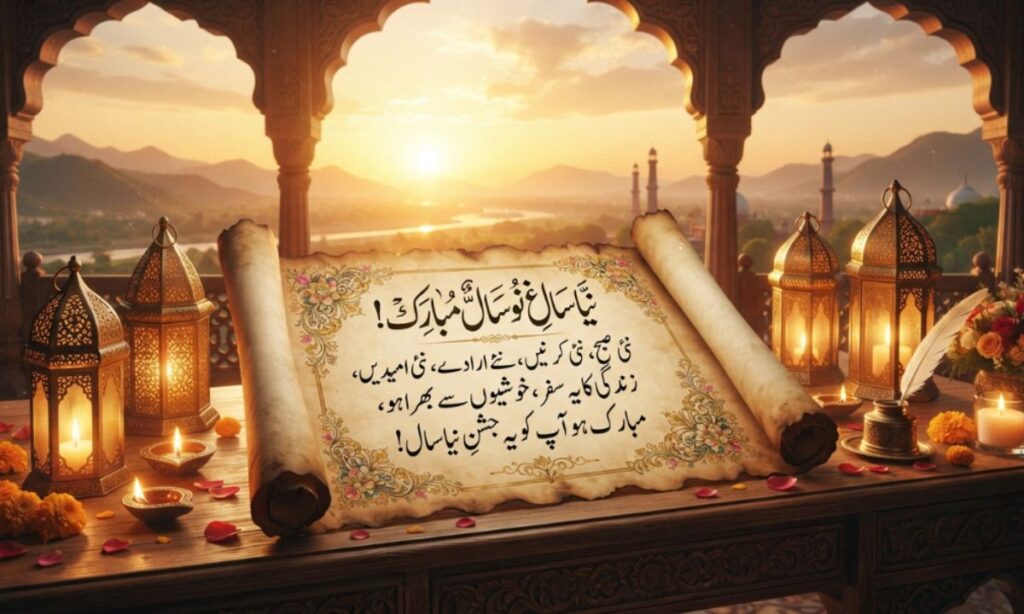 نیَّا سَالِغ نُوسَالٌ مُبَارِکْ!
نئی صبح، نئی کرنیں، نئے ارادے، نئی امیدیں،
زندگی کا یہ سفر، خوشیوں سے بھرا ہو،
مبارک ہو آپ کو یہ جشنِ نیا سال!